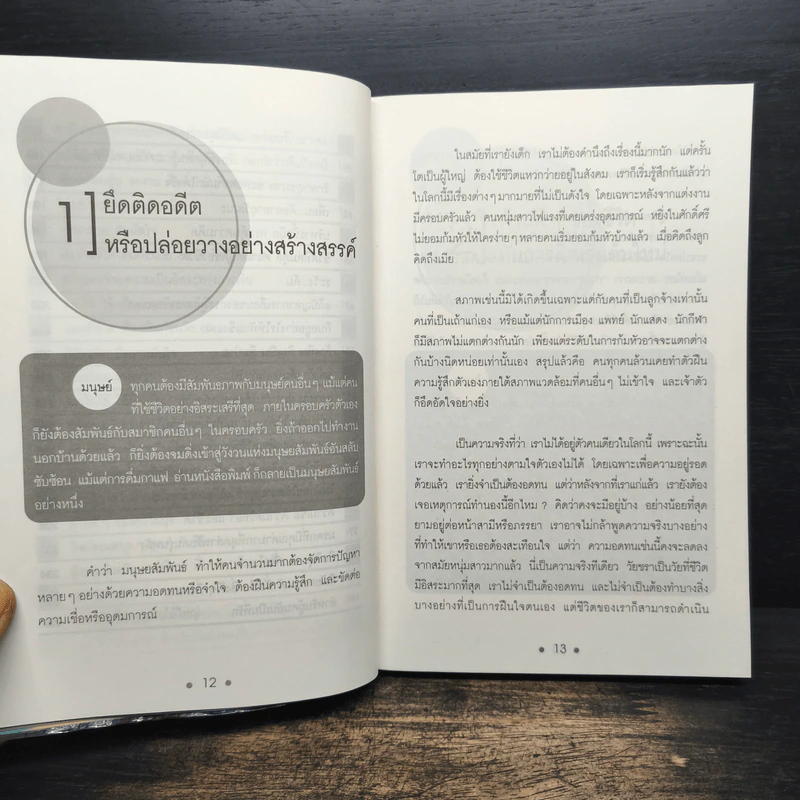 1]
ยึดติดอดีต
หรือปล่อยวางอย่างสร้างสรรค์
มนุษย์ ทุกคนต้องมีสัมพันธภาพกับมนุษย์คนอื่นๆ แม้แต่คน
ที่ใช้ชีวิตอย่างอิสระเสรีที่สุด ภายในครอบครัวตัวเอง
ก็ยังต้องสัมพันธ์กับสมาชิกคนอื่นๆ ในครอบครัว ยิ่งถ้าออกไปทำงาน
นอกบ้านด้วยแล้ว ก็ยิ่งต้องจมดิ่งเข้าสู่วังวนแห่งมนุษยสัมพันธ์อันสลับ
ซับซ้อน แม้แต่การดื่มกาแฟ อ่านหนังสือพิมพ์ ก็กลายเป็นมนุษยสัมพันธ์
อย่างหนึ่ง
คำว่า มนุษยสัมพันธ์ ทำให้คนจำนวนมากต้องจัดการปัญหา
หลายๆ อย่างด้วยความอดทนหรือจำใจ ต้องฝืนความรู้สึก และขัดต่อ
ความเชื่อหรืออุดมการณ์
12
ในสมัยที่เรายังเด็ก เราไม่ต้องคำนึงถึงเรื่องนี้มากนัก แต่ครั้น
โตเป็นผู้ใหญ่ ต้องใช้ชีวิตแหวกว่ายอยู่ในสังคม เราก็เริ่มรู้สึกกันแล้วว่า
ในโลกนี้มีเรื่องต่างๆ มากมายที่ไม่เป็นดังใจ โดยเฉพาะหลังจากแต่งงาน
มีครอบครัวแล้ว คนหนุ่มสาวไฟแรงที่เคยเคร่งอุดมการณ์ หยิ่งในศักดิ์ศรี
ไม่ยอมก้มหัวให้ใครง่ายๆ หลายคนเริ่มยอมก้มหัวบ้างแล้ว เมื่อคิดถึงลูก
คิดถึงเมีย
สภาพเช่นนี้มิได้เกิดขึ้นเฉพาะแต่กับคนที่เป็นลูกจ้างเท่านั้น
คนที่เป็นเถ้าแก่เอง หรือแม้แต่นักการเมือง แพทย์ นักแสดง นักกีฬา
ก็มีสภาพไม่แตกต่างกันนัก เพียงแต่ระดับในการก้มหัวอาจจะแตกต่าง
กันบ้างนิดหน่อยเท่านั้นเอง สรุปแล้วคือ คนทุกคนล้วนเคยทำตัวฝืน
ความรู้สึกตัวเองภายใต้สภาพแวดล้อมที่คนอื่นๆ ไม่เข้าใจ และเจ้าตัว
ก็อึดอัดใจอย่างยิ่ง
เป็นความจริงที่ว่า เราไม่ได้อยู่ตัวคนเดียวในโลกนี้ เพราะฉะนั้น
เราจะทำอะไรทุกอย่างตามใจตัวเองไม่ได้ โดยเฉพาะเพื่อความอยู่รอด
ด้วยแล้ว เรายิ่งจำเป็นต้องอดทน แต่ว่าหลังจากที่เราแก่แล้ว เรายังต้อง
เจอเหตุการณ์ทำนองนี้อีกไหม ? คิดว่าคงจะมีอยู่บ้าง อย่างน้อยที่สุด
ยามอยู่ต่อหน้าสามีหรือภรรยา เราอาจไม่กล้าพูดความจริงบางอย่าง
ที่ทำให้เขาหรือเธอต้องสะเทือนใจ แต่ว่า ความอดทนเช่นนี้คงจะลดลง
จากสมัยหนุ่มสาวมากแล้ว นี่เป็นความจริงทีเดียว วัยชราเป็นวัยที่ชีวิต
มีอิสระมากที่สุด เราไม่จำเป็นต้องอดทน และไม่จำเป็นต้องทำบางสิ่ง
บางอย่างที่เป็นการฝืนใจตนเอง แต่ชีวิตของเราก็สามารถดำเนิน
13